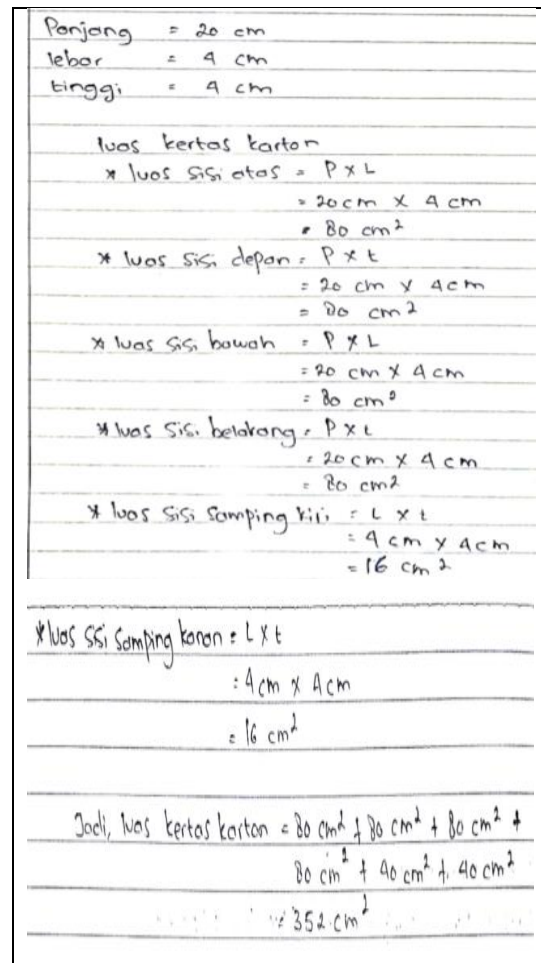 Panjang = 20 cm
lebar = 4 cm
tinggi = 4 cm
luas kertas karton
* luas sisi atas = P x L
= 20 cm x 4 cm
= 80 cm²
* luas sisi depan = P x t
= 20 cm x 4 cm
= 80 cm²
* luas sisi bawah = P x L
= 20 cm x 4 cm
= 80 cm²
* luas sisi belakang = P x t
= 20 cm x 4 cm
= 80 cm²
* luas sisi samping kiri = L x t
= 4 cm x 4 cm
= 16 cm²
* luas ssi samping kanan = L x t
= 4 cm x 4 cm
= 16 cm²
Jadi, luas kertas karton = 80 cm² + 80 cm² + 80 cm² +
80 cm² + 40 cm² + 40 cm²
= 352 cm²